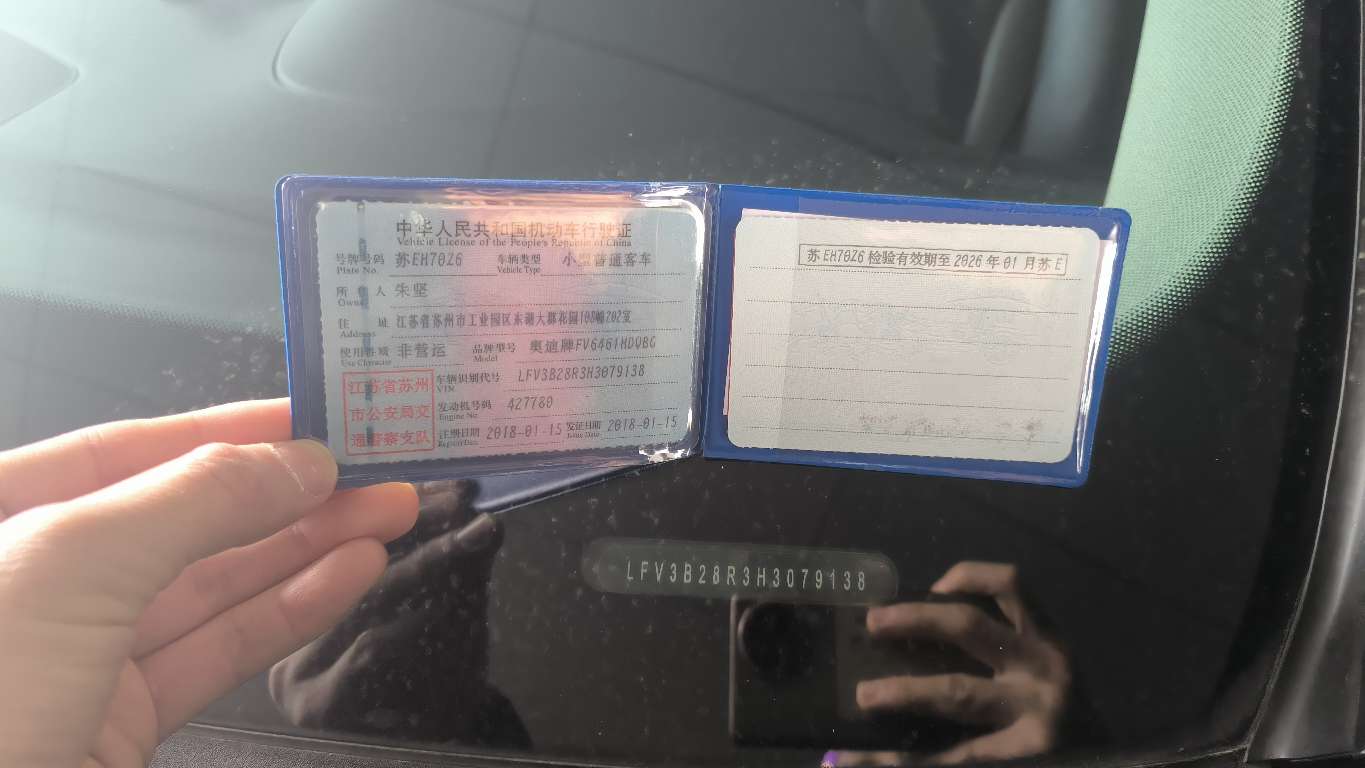 中华人民共和国机动车行驶证
Vehicle License of the People's Republic of China
号牌号码 苏EH70Z6 车辆类型 小型普通客车
Plate No. Vehicle Type
所有人 朱坚
Owner
住址 江苏省苏州市工业园区东湖大郡花园108幢202室
Address
使用性质 非营运 品牌型号 奥迪牌FV6461HDQBG
Use Character Model
江苏省苏州
市公安局交
通警察支队
车辆识别代号 LFV3B28R3H3079138
VIN
发动机号码 427780
Engine No.
注册日期 2018-01-15 发证日期 2018-01-15
Register Date Issue Date
苏EH70Z6检验有效期至2026年01月苏E
LFV3B28R3H3079138